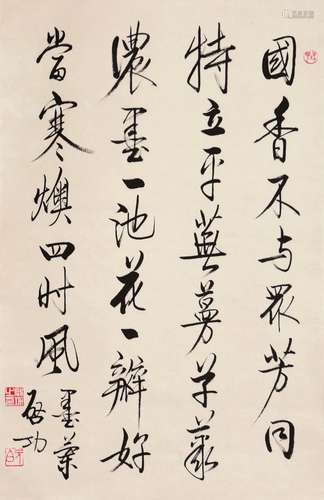 國香不与眾芳同
特立平蕪蔓草叢
濃墨一池花一瓣好
當寒燠四时風
墨蘭
啟功